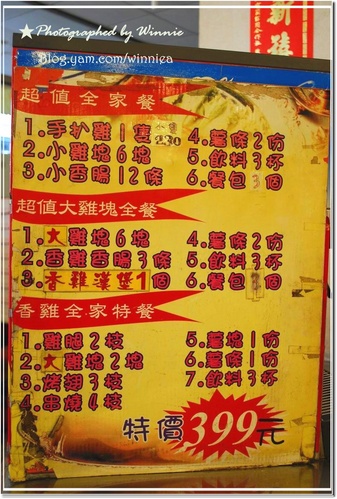 ★ Photographed by Winnie
Blog.yam.com/winniea
超值全家餐
1.手扒雞1隻
2.小雞塊6塊
3.小香腸12條
4.薯條2份
5.飲料3杯
6.餐包3個
超值大雞塊全餐
1.大雞塊6塊
2.香雞香腸3條
3.香雞漢堡1個
4.薯條2份
5.飲料3杯
6.餐包 個
香雞全家特餐
1.雞腿2枝
2.大雞塊2塊
3.烤翅3枝
4.串燒4枝
5.薯塊1份
6.薯條1份
7.飲料3杯
特價399元